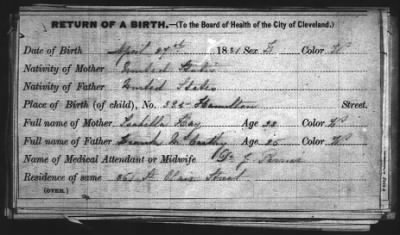 RETURN OF A BIRTH.—(To the Board of Health of the City of Cleveland.)
Date of Birth April 27th 1881 Sex F Color W
Nativity of Mother United States
Nativity of Father United States
Place of Birth (of child), No. Hamilton Street.
Full name of Mother Isabella Age 22 Color W
Full name of Father Frank McCarthy Age 25 Color W
Name of Medical Attendant or Midwife Dr J
Residence of same St Clair Street
(OVER.)